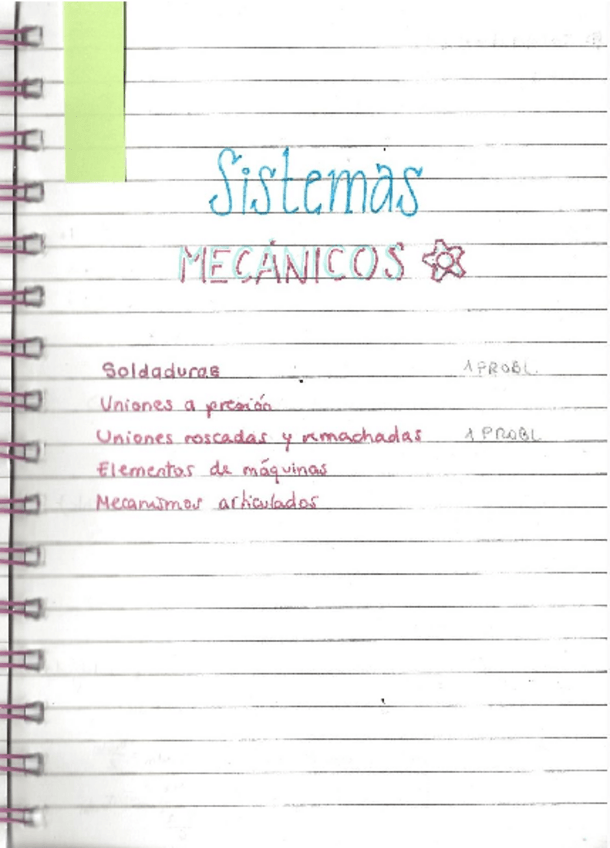 Sistemas
MECÁNICOS
Soldaduras 1 PROBL.
Uniones a presión
Uniones roscadas y remachadas 1 PROBL
Elementos de máquinas
Mecanismos articulados